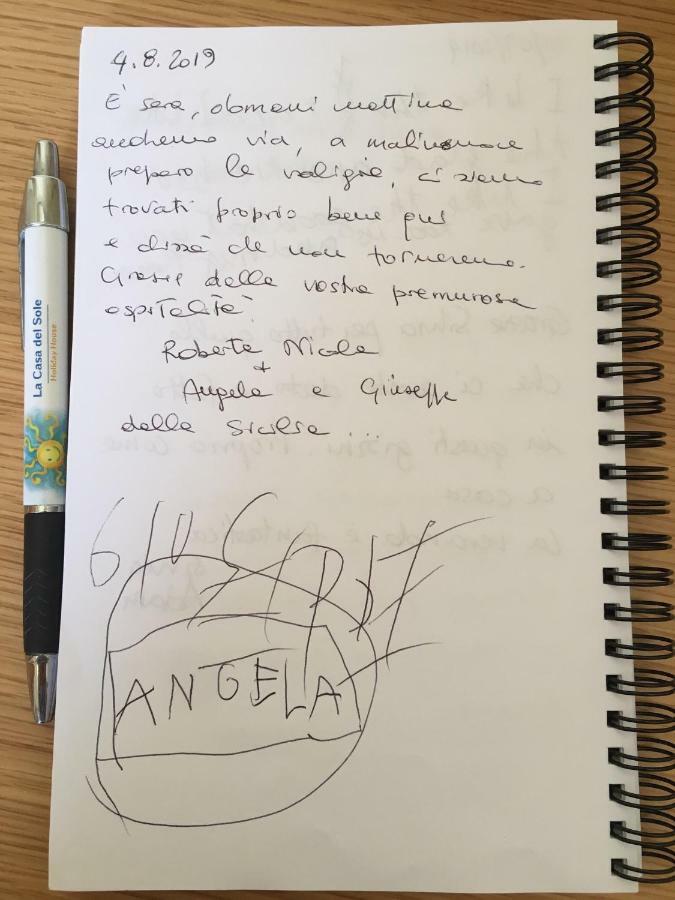 4.8.2019
È sera, domani mattina
andremo via, a malincuore
preparo le valigie, ci siamo
trovati proprio bene qui
e chissà se non torneremo.
Grazie della vostra premurosa
ospitalità.
Roberta Nicola
+
Angela e Giuseppe
dalla Sicilia...
GIUSEPP
ANGELA
La Casa del Sole
Holiday House